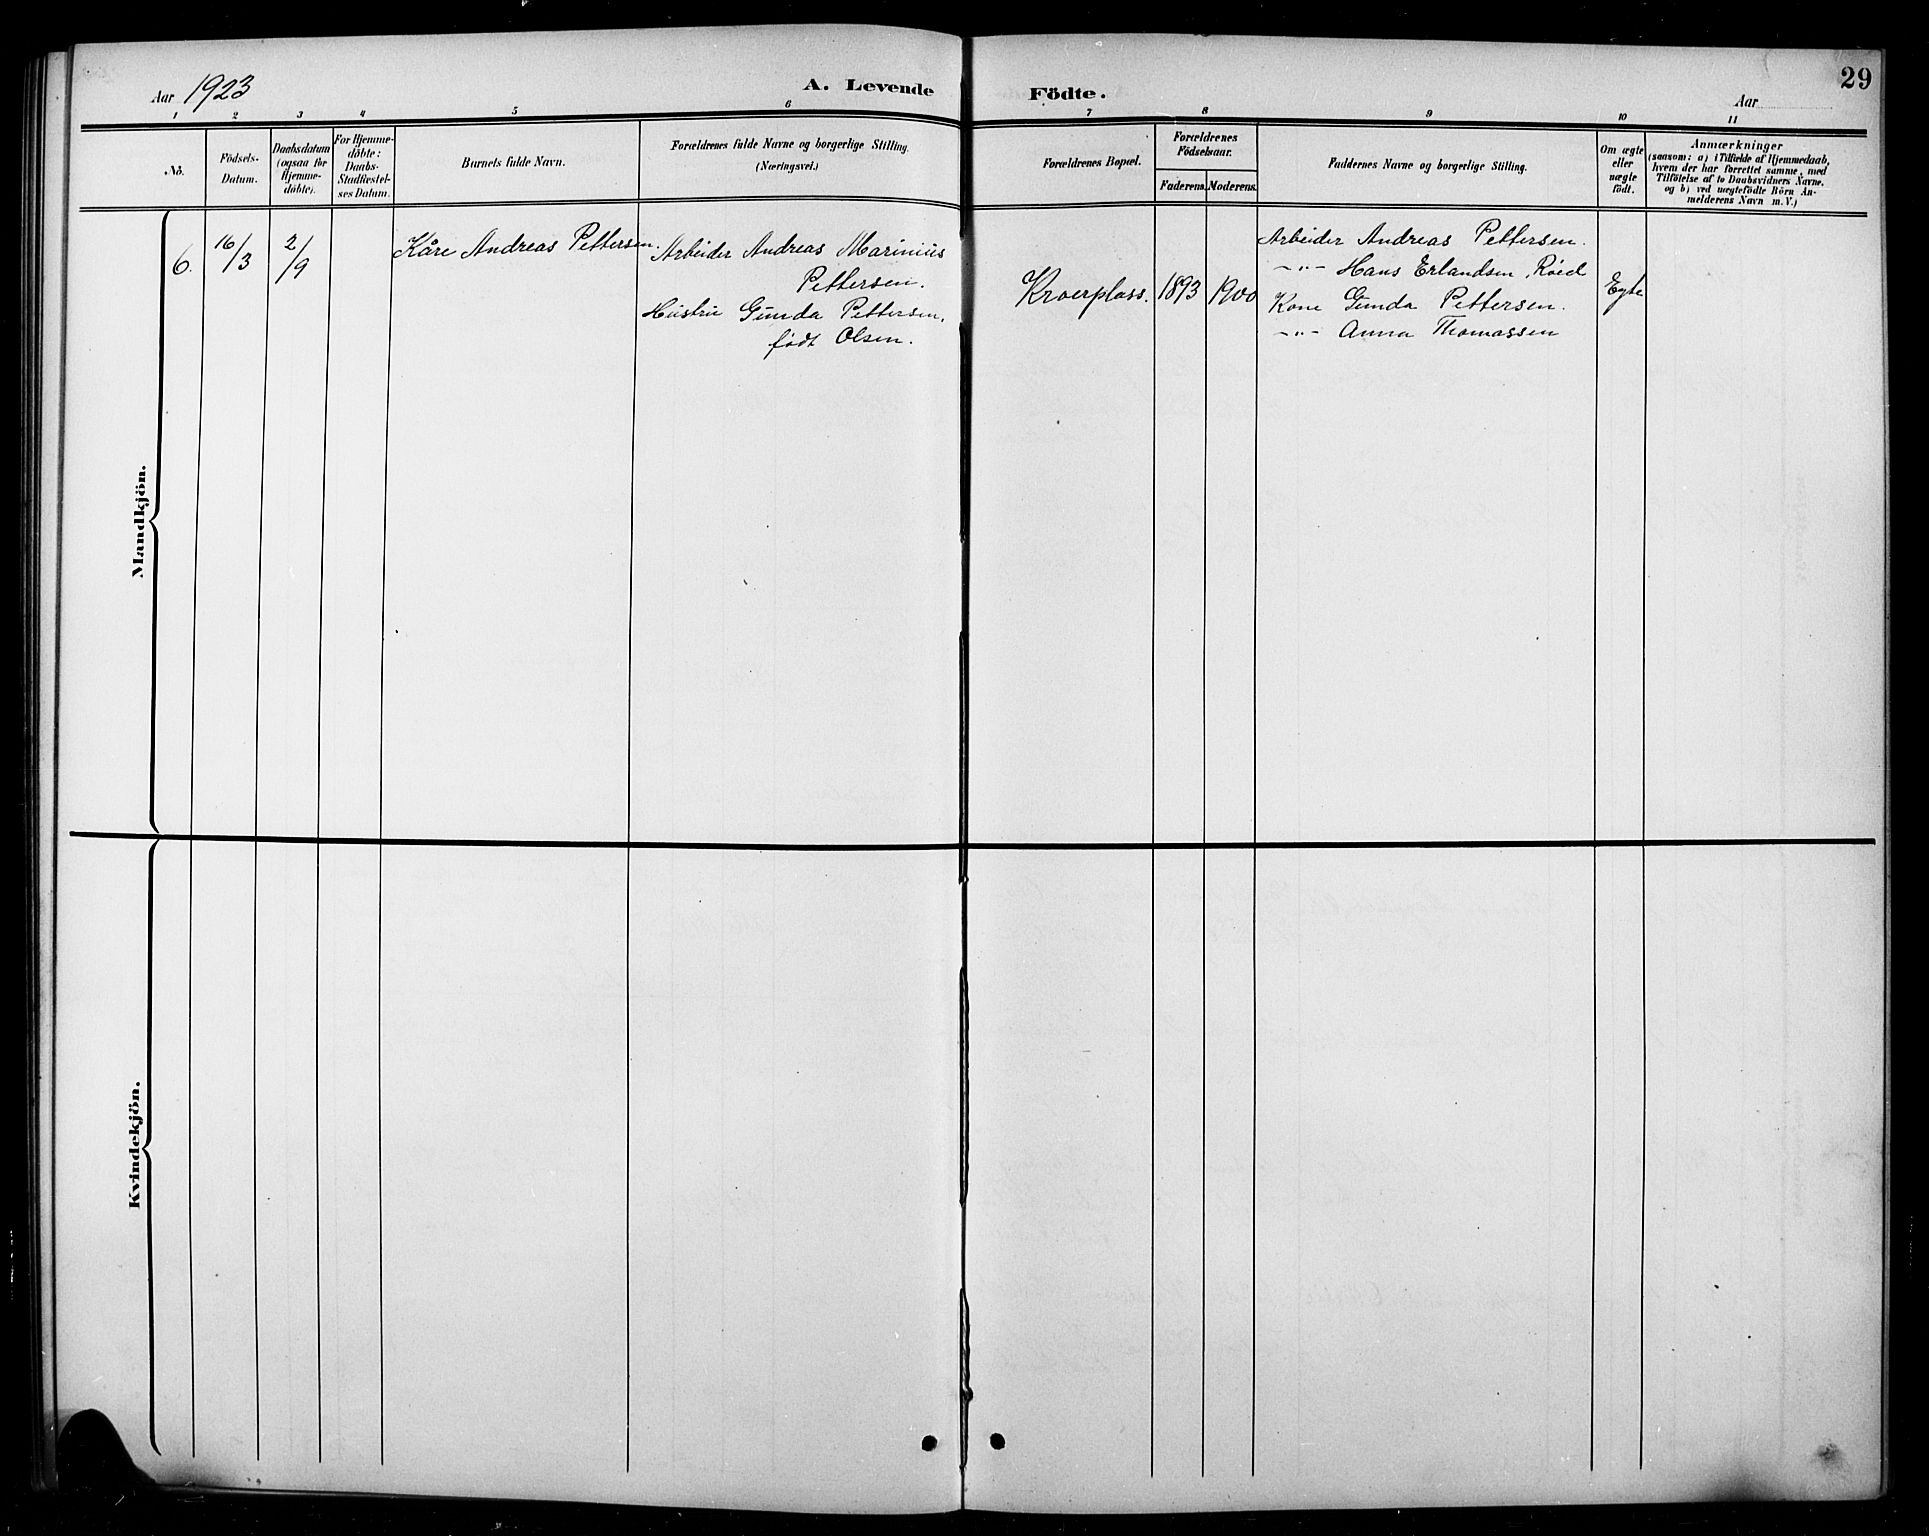 29
Aar 1923
A. Levende Födte.
Aar
1 2 3 4 5 6 7 8 9 10 11
No.
Födsels-
Datum.
Daabsdatum
(ogsaa för
Hjemme-
döbte).
For Hjemme-
döbte:
Daabs-
Stadfestel-
ses Datum.
Barnets fulde Navn.
Forældrenes fulde Navne og borgerlige Stilling.
(Næringsvei.)
Forældrenes Bopæl.
Forældrenes
Födselsaar.
Faderens. Moderens.
Faddernes Navne og borgerlige Stilling.
Om ægte
eller
uægte
födt.
Anmærkninger
(saasom: a) i Tilfælde af Hjemmedaab,
hvem der har forrettet samme, med
Tilföielse af to Daabsvidners Navne.
og b) ved uægtefödte Börn An-
melderens Navn m.V.)
Mandkjön.
6.
16/3
2/9
Kåre Andreas Pettersen.
Arbeider Andreas Marinius
Pettersen.
Hustru Gunda Pettersen,
født Olsen.
Kroerplass.
1893
1900
Arbeider Andreas Pettersen.
-"- Hans Erlandsen, Röed
Kone Gunda Pettersen.
-"- Anna Thomassen
Egte
Kvindekjön.